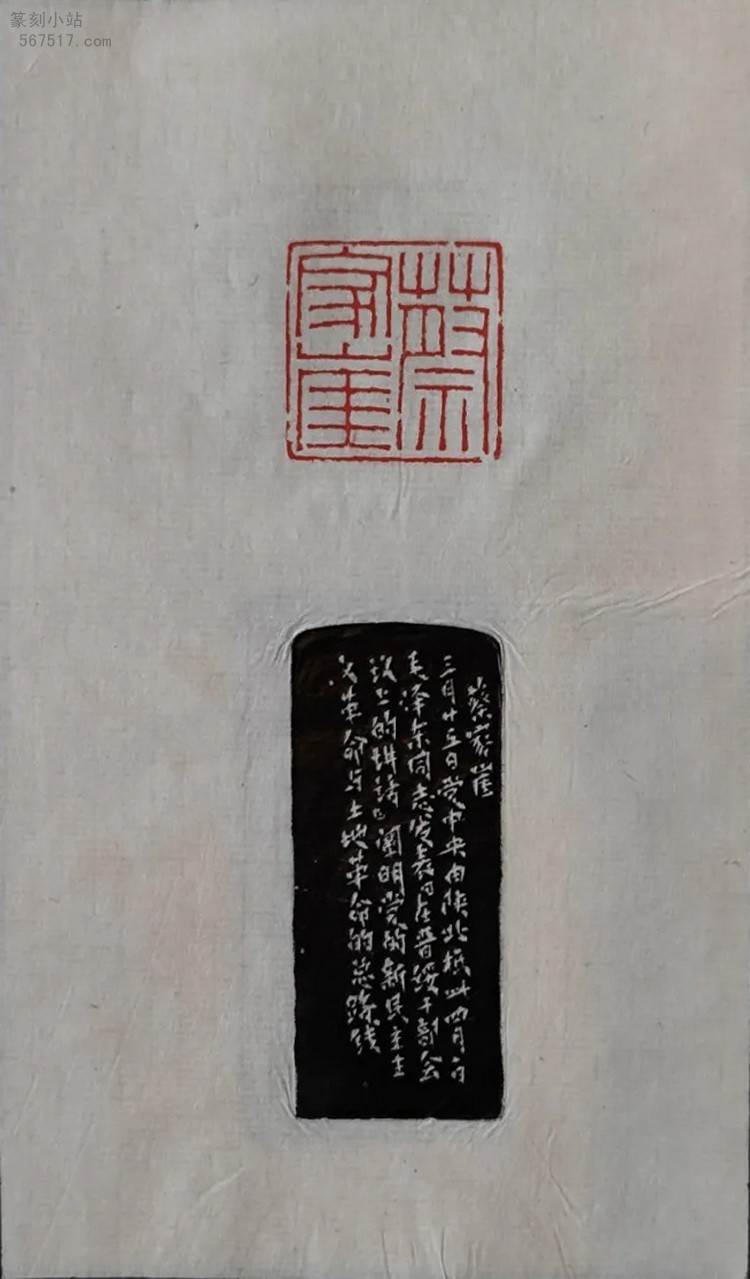 篆刻小站
567517.com
蔡
家崖
蔡家崖
三月廿五日党中央由陕北抵此四月一日
毛泽东同志发表「在晋绥干部会
议上的讲话」阐明党的新民主主
义革命与土地革命的总路线